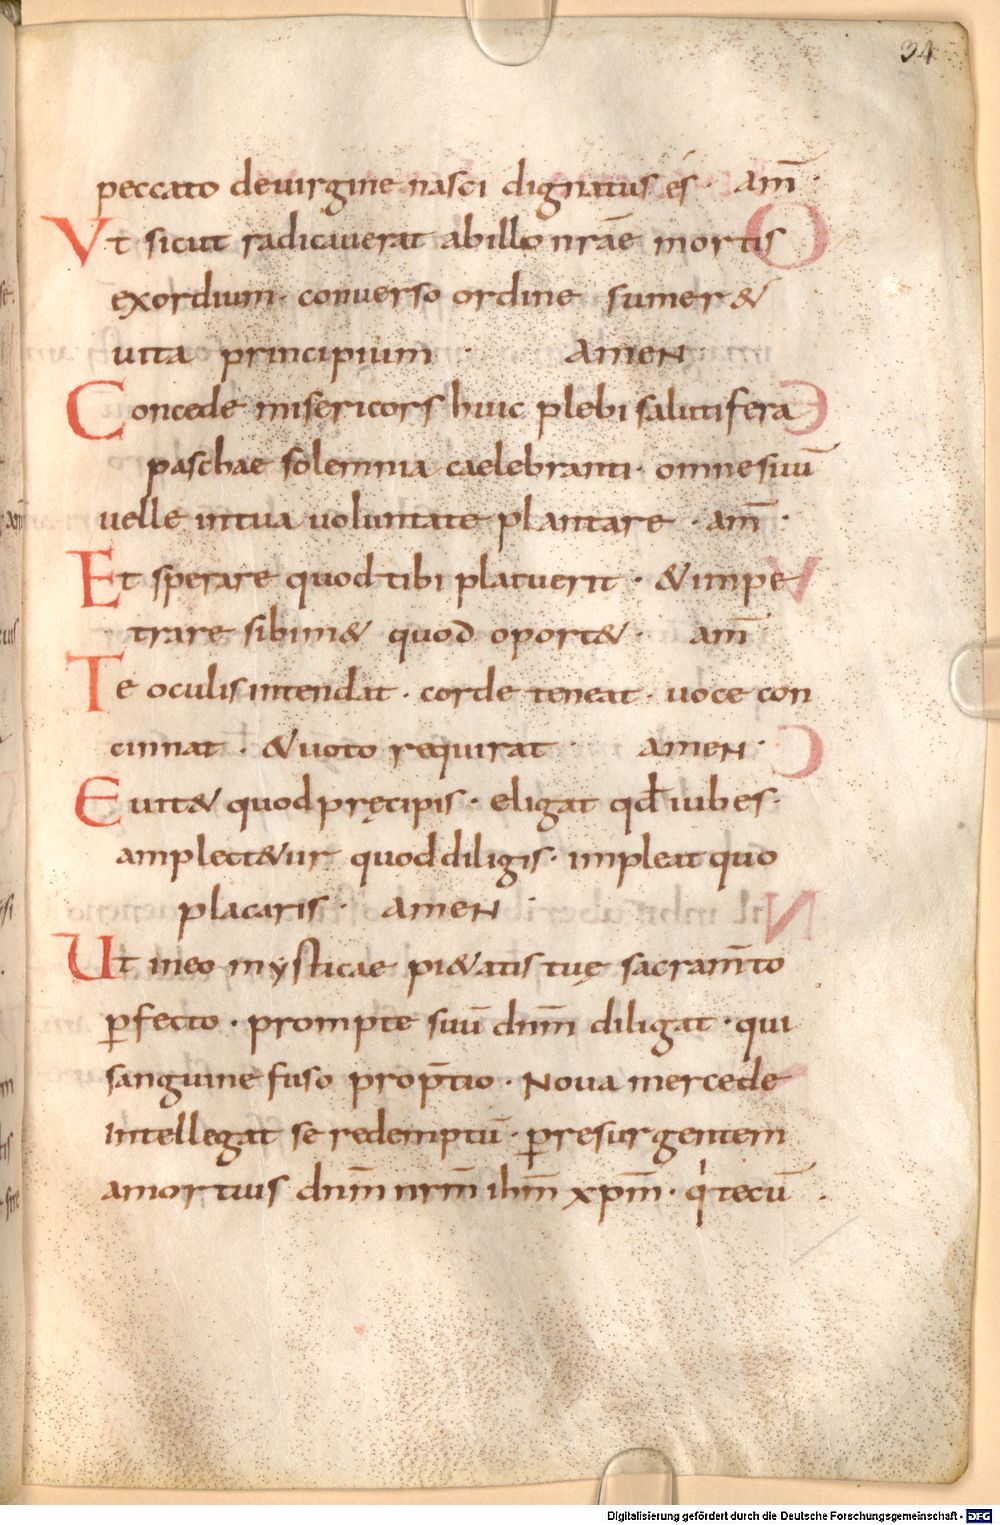 34
peccato deuirgine nasci dignatus es · am̅ ·
Vt sicut radicauerat abillo nr̅ae mortis
exordium · conuerso ordine sumer&
uita principium · AmeN ·
Concede misericors huic plebi salutifera
paschae solemnia caelebranti · omnesuu̅
uelle intua uoluntate plantare · am̅ ·
Et sperare quodtibi placuerit · &impe
trare sibim& quod oport& · am̅
Te oculisintendat · corde teneat · uoce con
cinnat · &uoto requirat · AmeN ·
Euit& quodpręcipis · eligat qd̅ iubes ·
amplect&ur quoddiligis · impleat quo
placaris · AmeN ·
Ut ineo mysticae pi&atis tuę sacram̅to
p̲fecto · prompte suu̅ dnm̅ diligat · qui
sanguine fuso prop̅tio · Noua mercede
Intellegat se redemptu̅ · p̲resurgentem
amortuis dnm̅ nrm̅ ihm̅ xpm̅ · q' tecu̅ ·
Digitalisierung gefördert durch die Deutsche Forschungsgemeinschaft - DFG